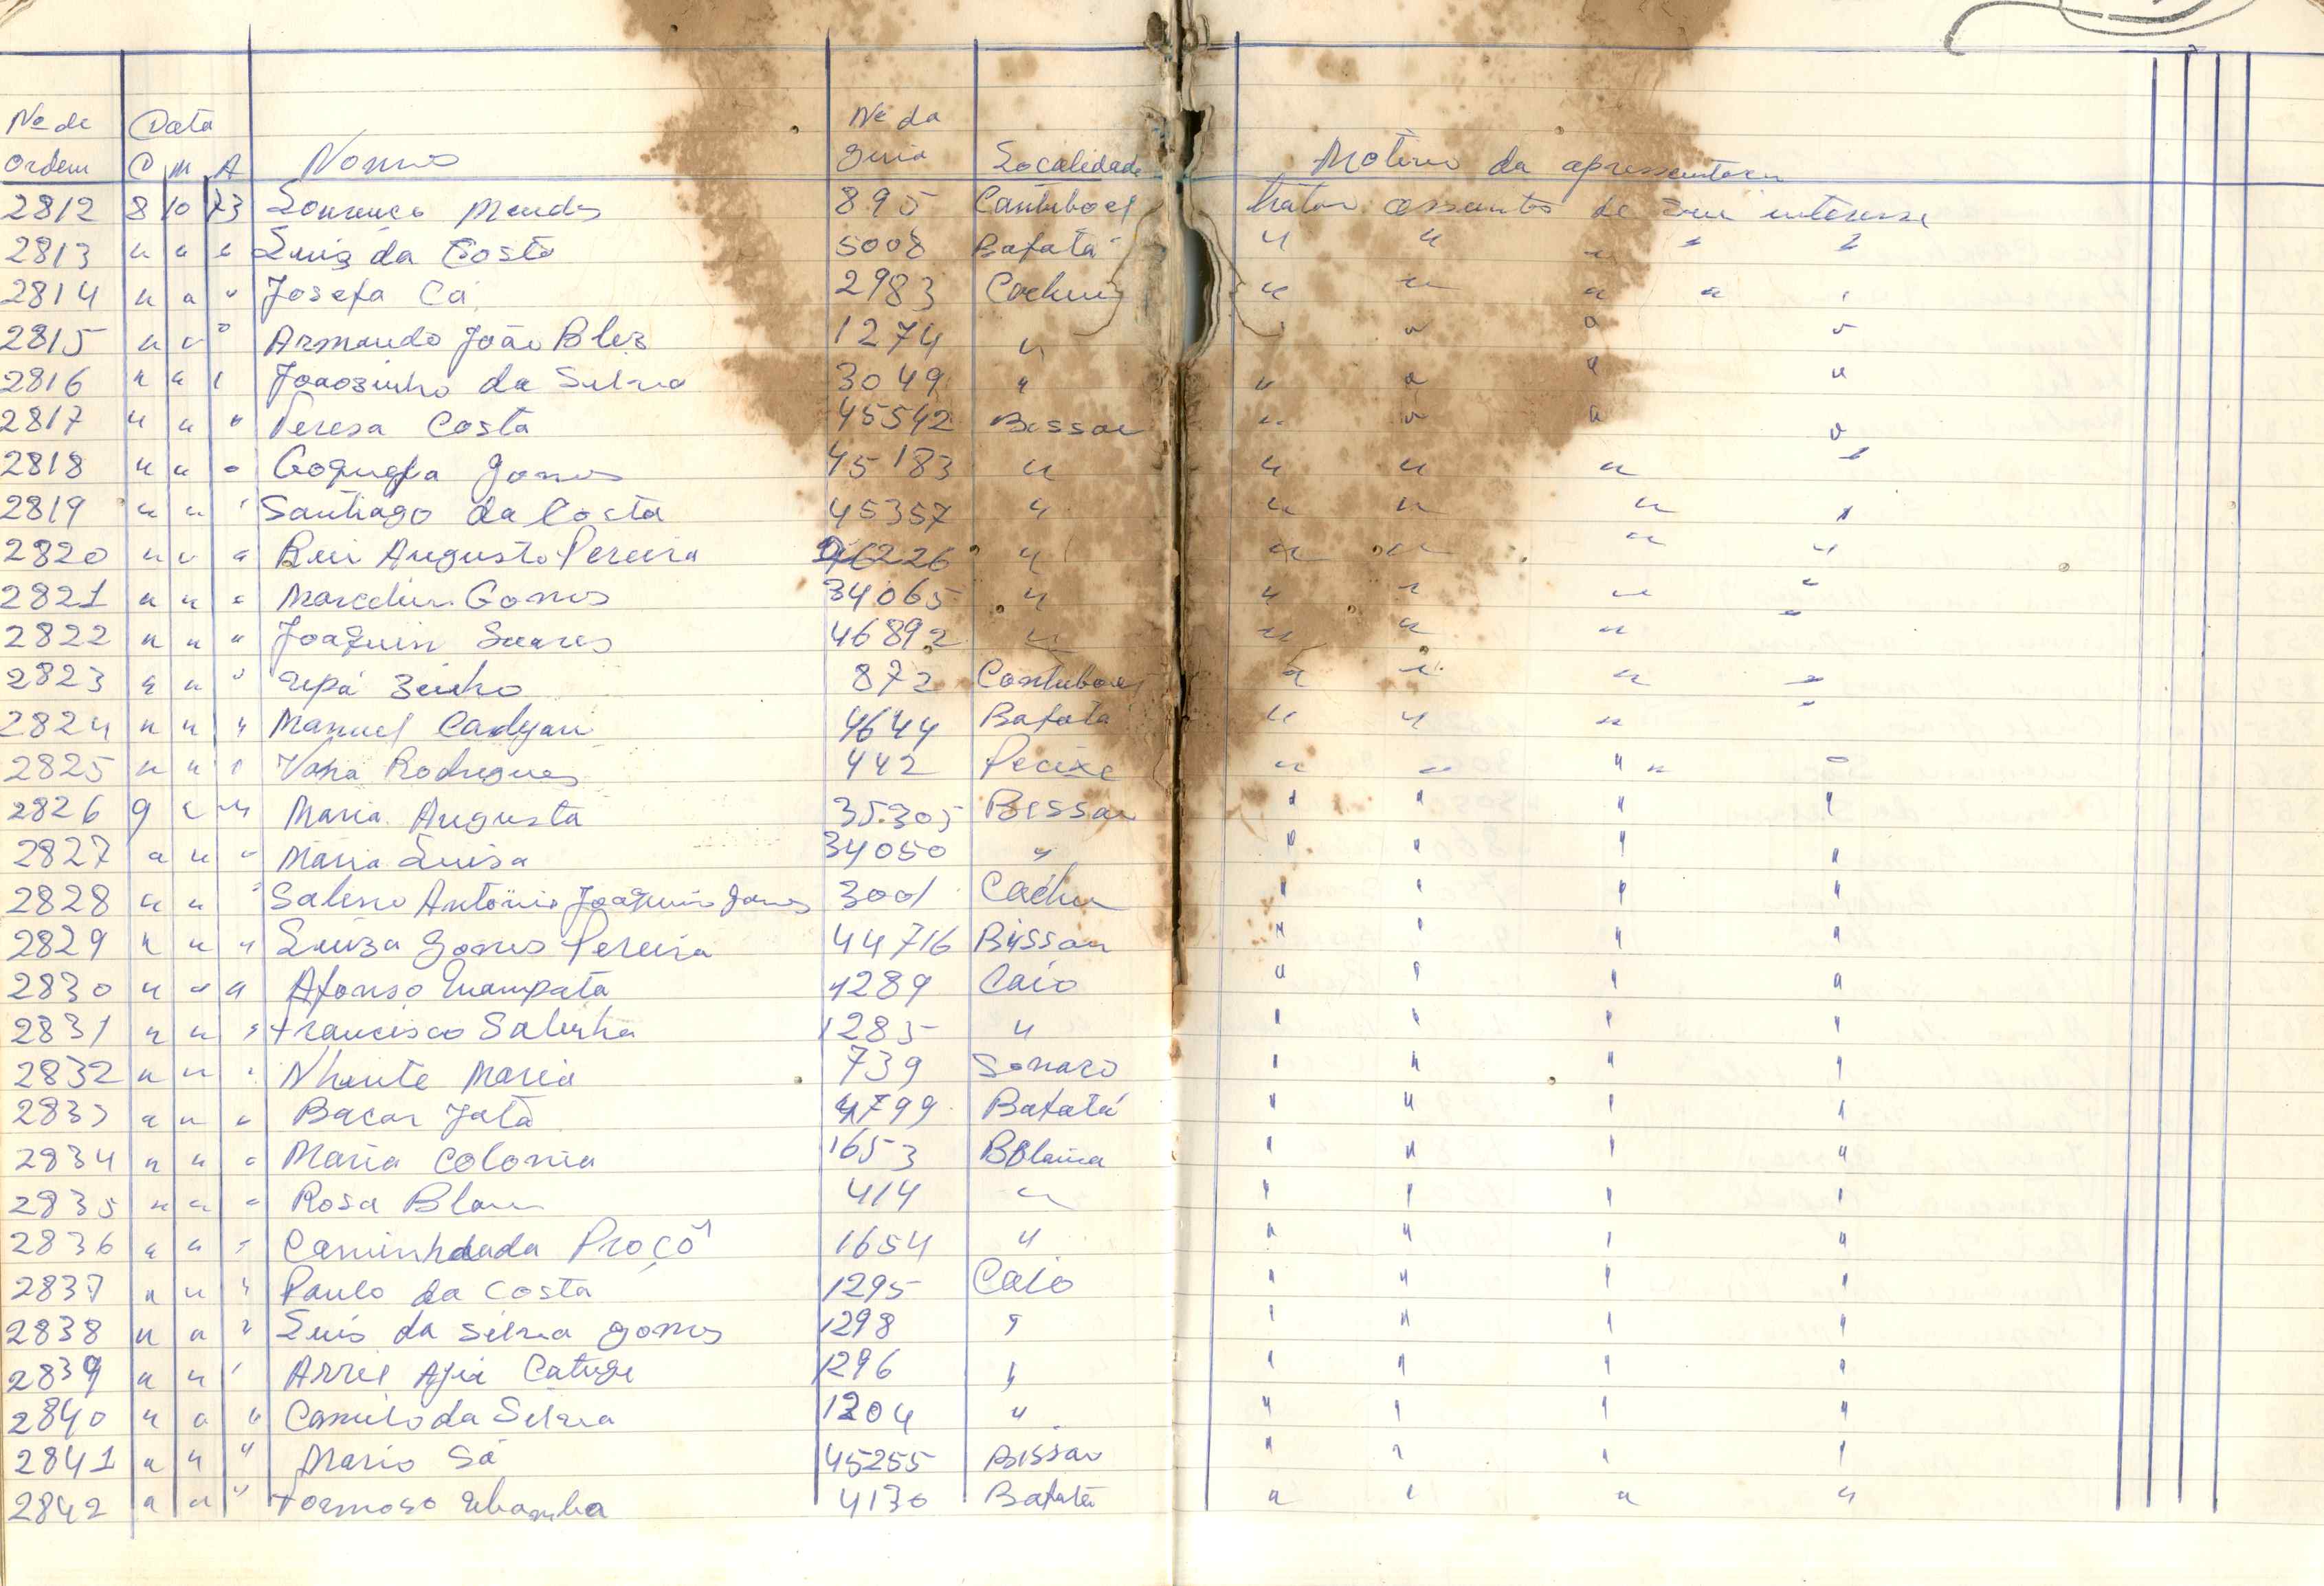 Nº de Data Nº da
ordem D M A Nomes guia Localidade Motivo da apresentaçaõ
2812 8 10 73 Lourenço Mendes 895 Contuboel tratar assunto de seu interesse
2813 " " " Luis da Costa 5008 Bafatá " " " " "
2814 " " " Josefa Cá 2983 Cacheu " " " " "
2815 " " " Armando João 1274 " " " " "
2816 " " " Joaosinho da Silva 3049 " " " " "
2817 " " " Teresa Costa 45542 Bissau " " " "
2818 " " " Gomes 45183 " " " " "
2819 " " " Santiago da Costa 45357 " " " " "
2820 " " " Rui Augusto Pereira 46226 " " " " "
2821 " " " Gomes 34065 " " " " "
2822 " " " Joaquim Soares 46892 " " " " "
2823 " " " 872 Contuboel " " " "
2824 " " " Manuel 4644 Bafatá " " " "
2825 " " " Rodrigues 442 Pecixe " " " " "
2826 9 " " Maria Augusta 35.305 Bissau " " " "
2827 " " " Maria Luisa 34050 " " " " "
2828 " " " António Joaquim Gomes 3001 Cacheu " " " "
2829 " " " Luiza Gomes Pereira 44716 Bissau " " " "
2830 " " " Afonso 1289 Caio " " " "
2831 " " " Francisco 1285 " " " " "
2832 " " " Nhante Maria 739 Sonaco " " " "
2833 " " " Bacar Jatá 4799 Bafatá " " " "
2834 " " " Maria Colonia 1653 Bolama " " " "
2835 " " " Rosa 414 " " " " "
2836 " " " Caminhdada Proçô 1654 " " " " "
2837 " " " Paulo da Costa 1295 Caio " " " "
2838 " " " Luis da Silva Gomes 1298 " " " " "
2839 " " " Catuge 1296 " " " " "
2840 " " " Camilo da Silva 1204 " " " " "
2841 " " " Mario Sá 45255 Bissau " " " "
2842 " " " Formoso 4130 Bafatá " " " "